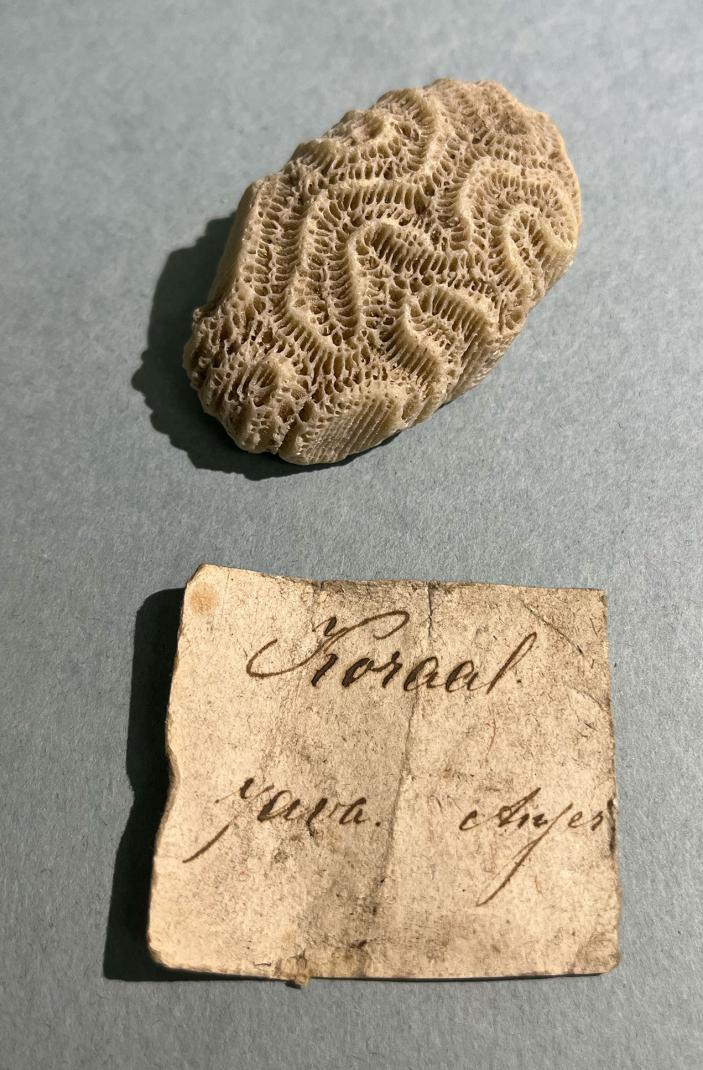 Koraal.
Java. Anjer